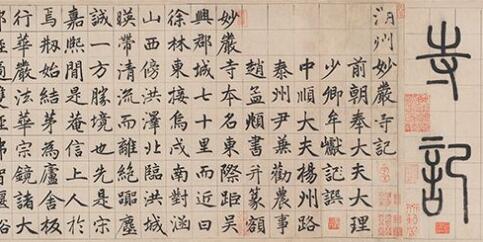 寺記
湖州妙嚴寺記
前朝奉大夫大理
少卿牟巘記撰
中順大夫楊州路
泰州尹兼勸農事
趙孟頫書并篆額
妙嚴寺本名東際距吳
興郡城七十里而近曰
徐林東接烏戍南對涵
山西傍洪澤北臨洪城
暎帶清流而離絕嚻塵
誠一方勝境也先是宋
嘉熙間是菴信上人於
焉刱始結茅為廬舍板
行華嚴法華宗鏡諸大